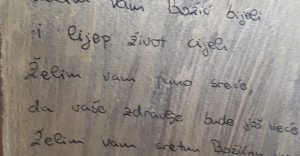 Želim vam božić bijeli
i lijep život cijeli
Želim vam puno sreće,
da vaše zdravlje bude još veće
Želim vam sretan Božić